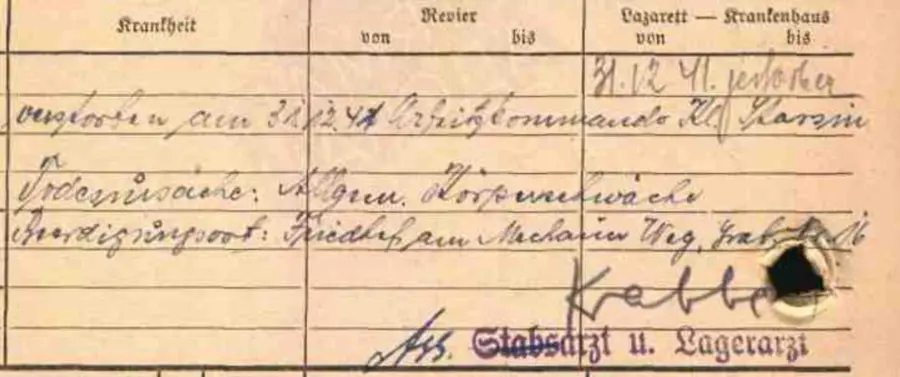 Krankheit
Revier
Lazarett — Krankenhaus
von bis von bis
31.12.41. gestorben
verstorben am 31.12.41 Arbeitskommando Kl. Starsin
Todesursache: Allgem. Körperschwäche
Beerdigungsort: Friedhof am Mechauer Weg, Grab Nr. 16
Krabbe
Ass. Stabsarzt u. Lagerarzt